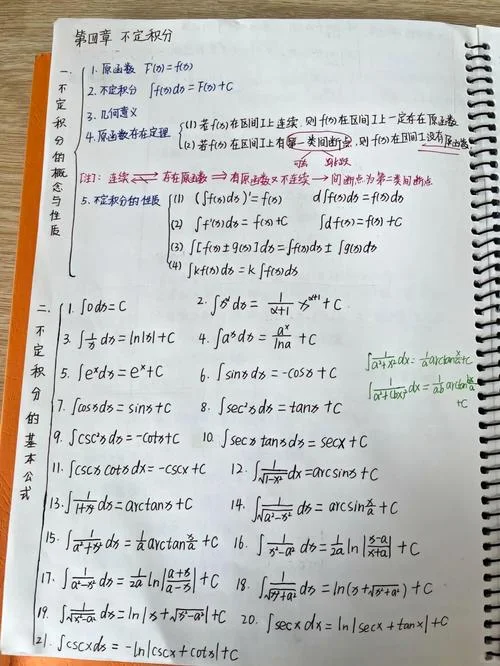 第四章 不定积分
一、不定积分的概念与性质
1. 原函数 F'(x)=f(x)
2. 不定积分 ∫f(x)dx=F(x)+C
3. 几何意义
4. 原函数存在定理
(1) 若f(x)在区间I上连续,则f(x)在区间I上一定存在原函数
(2) 若f(x)在区间I上有第一类间断点,则f(x)在区间I没有原函数
可去 跳跃
[注]: 连续 ⇌ 存在原函数 ⇒ 有原函数又不连续 → 间断点为第二类间断点
5. 不定积分的性质
(1) (∫f(x)dx)'=f(x) d∫f(x)dx=f(x)dx
(2) ∫f'(x)dx=f(x)+C ∫df(x)=f(x)+C
(3) ∫[f(x)±g(x)]dx=∫f(x)dx±∫g(x)dx
(4) ∫kf(x)dx=k∫f(x)dx
二、不定积分的基本公式
1. ∫0dx=C 2. ∫x^α dx=1/(α+1) x^(α+1)+C
3. ∫1/x dx=ln|x|+C 4. ∫a^x dx=a^x/lna+C
5. ∫e^x dx=e^x+C 6. ∫sinxdx=-cosx+C
7. ∫cosxdx=sinx+C 8. ∫sec²xdx=tanx+C
9. ∫csc²xdx=-cotx+C 10. ∫secxtanxdx=secx+C
11. ∫cscxcotxdx=-cscx+C 12. ∫1/√(1-x²) dx=arcsinx+C
13. ∫1/(1+x²) dx=arctanx+C 14. ∫1/√(a²-x²) dx=arcsin x/a+C
15. ∫1/(a²+x²) dx=1/a arctan x/a+C 16. ∫1/(x²-a²) dx=1/2a ln|(x-a)/(x+a)|+C
17. ∫1/(a²-x²) dx=1/2a ln|(a+x)/(a-x)|+C 18. ∫1/√(x²+a²) dx=ln(x+√(x²+a²))+C
19. ∫1/√(x²-a²) dx=ln|x+√(x²-a²)|+C 20. ∫secxdx=ln|secx+tanx|+C
21. ∫cscxdx=-ln|cscx+cotx|+C
∫1/(a²+x²) dx=1/a arctan x/a+C
∫1/(a²+(bx)²) dx=1/ab arctan bx/a
+C